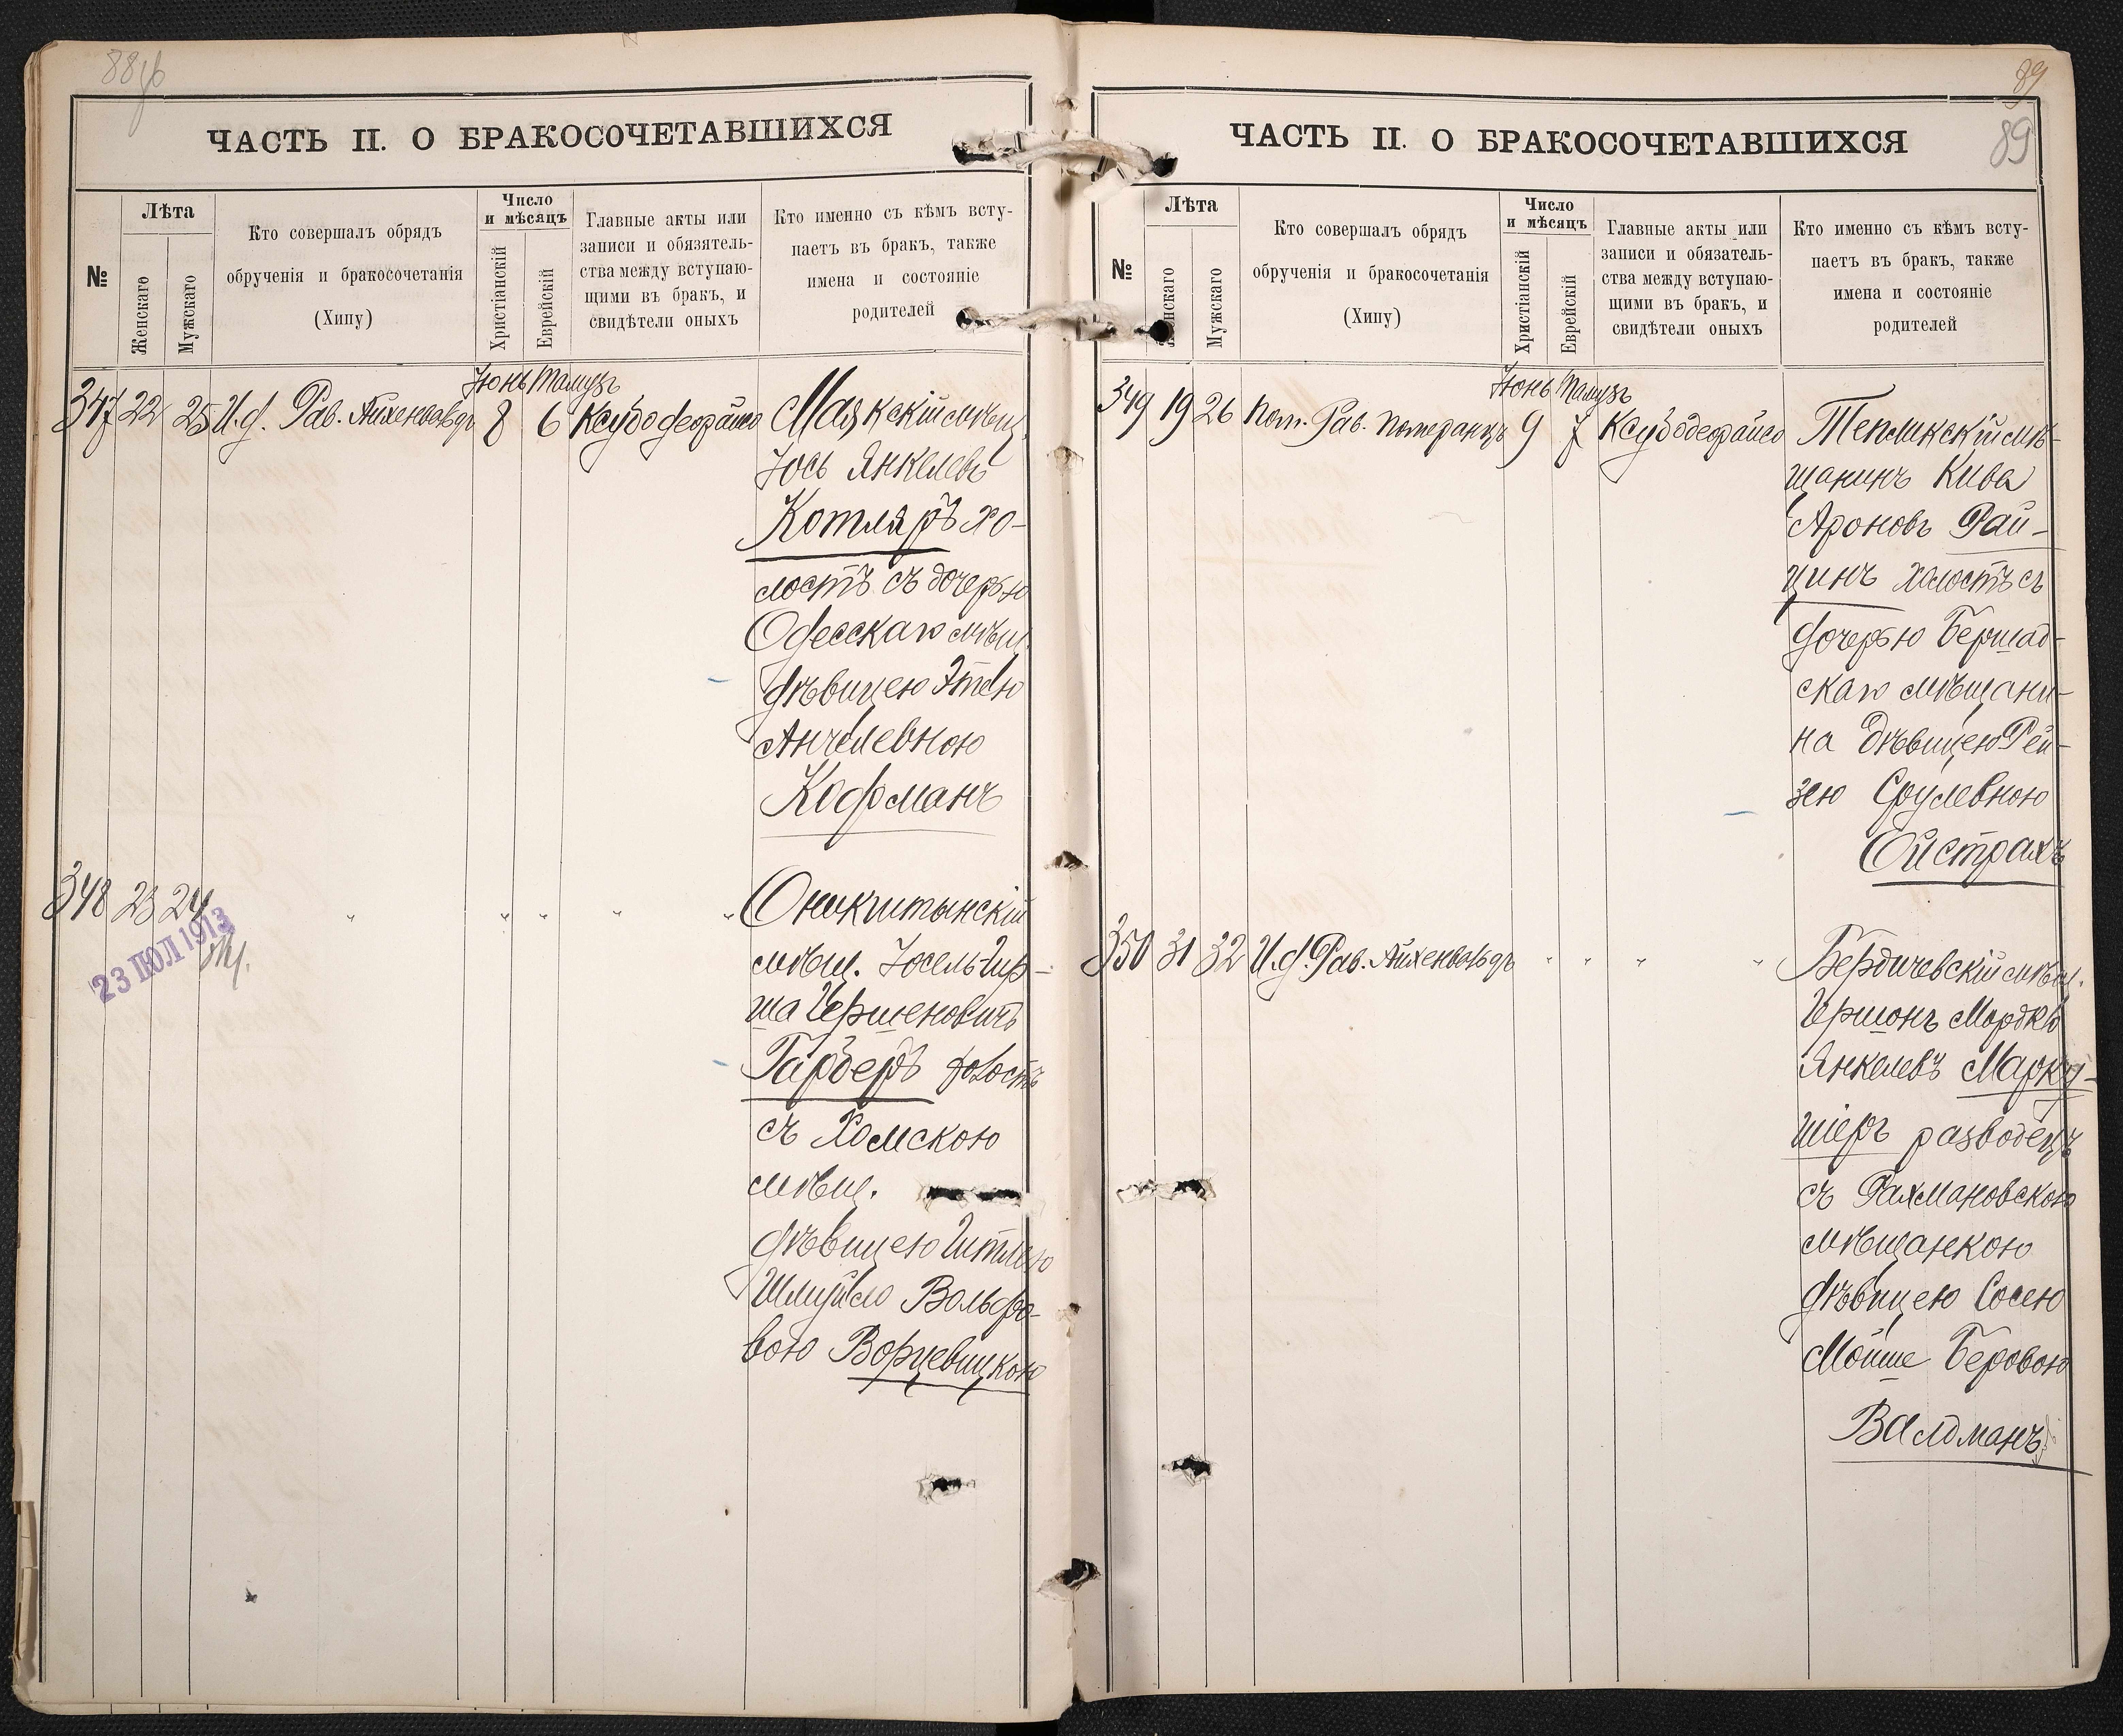 88об
ЧАСТЬ II. О БРАКОСОЧЕТАВШИХСЯ
№
Лѣта
Женскаго
Мужскаго
Кто совершалъ обрядъ
обрученія и бракосочетанія
(Хипу)
Число
и мѣсяцъ
Христіанскій
Еврейскій
Главные акты или
записи и обязятель-
ства между вступаю-
щими въ бракъ, и
свидѣтели оныхъ
Кто именно съ кѣмъ всту-
паетъ въ бракъ, также
имена и состояніе
родителей
Іюнь Тамузъ
347 22 25 И.д. Рав. Айхенвальдъ 8 6 Ксубо деорайсо Маякскій мѣщ.
Іось Янкелевъ
Котляръ хо-
лостъ съ дочерью
Одесскаго мѣщ.
дѣвицею Этелю
Анчелевною
Кофманъ
348 23 24 " " " " " Оникштынскій
мѣщ. Іосель-Гир-
ша Гершеновичъ
Гарберъ холостъ
съ Хомскою
мѣщ.
дѣвицею Гитлею
Шмуйло Вольфо-
вою Ворцевицкою
23 ІЮЛ 1913
89
89
ЧАСТЬ II. О БРАКОСОЧЕТАВШИХСЯ
№
Лѣта
Женскаго
Мужскаго
Кто совершалъ обрядъ
обрученія и бракосочетанія
(Хипу)
Число
и мѣсяцъ
Христіанскій
Еврейскій
Главные акты или
записи и обязатель-
ства между вступаю-
щими въ бракъ, и
свидѣтели оныхъ
Кто именно съ кѣмъ всту-
паетъ въ бракъ, также
имена и состояніе
родителей
Іюнь Тамузъ
349 19 26 Пом. Рав. Померанцъ 9 7 Ксубо деорайсо Тепликскій мѣ-
щанинъ Кива
Ароновъ Рай-
цинъ холостъ съ
дочерью Бершад-
скаго мѣщани-
на дѣвицею Рей-
зею Срулевною
Ойстрахъ
350 31 32 И.д. Рав. Айхенвальдъ " " " " Бердичевскій мѣщ.
Гершонъ Мордко
Янкелевъ Марку-
шеръ разводецъ
съ Рахмановскою
мѣщанкою
дѣвицею Сосею
Мойше Беровою
Валдманъ